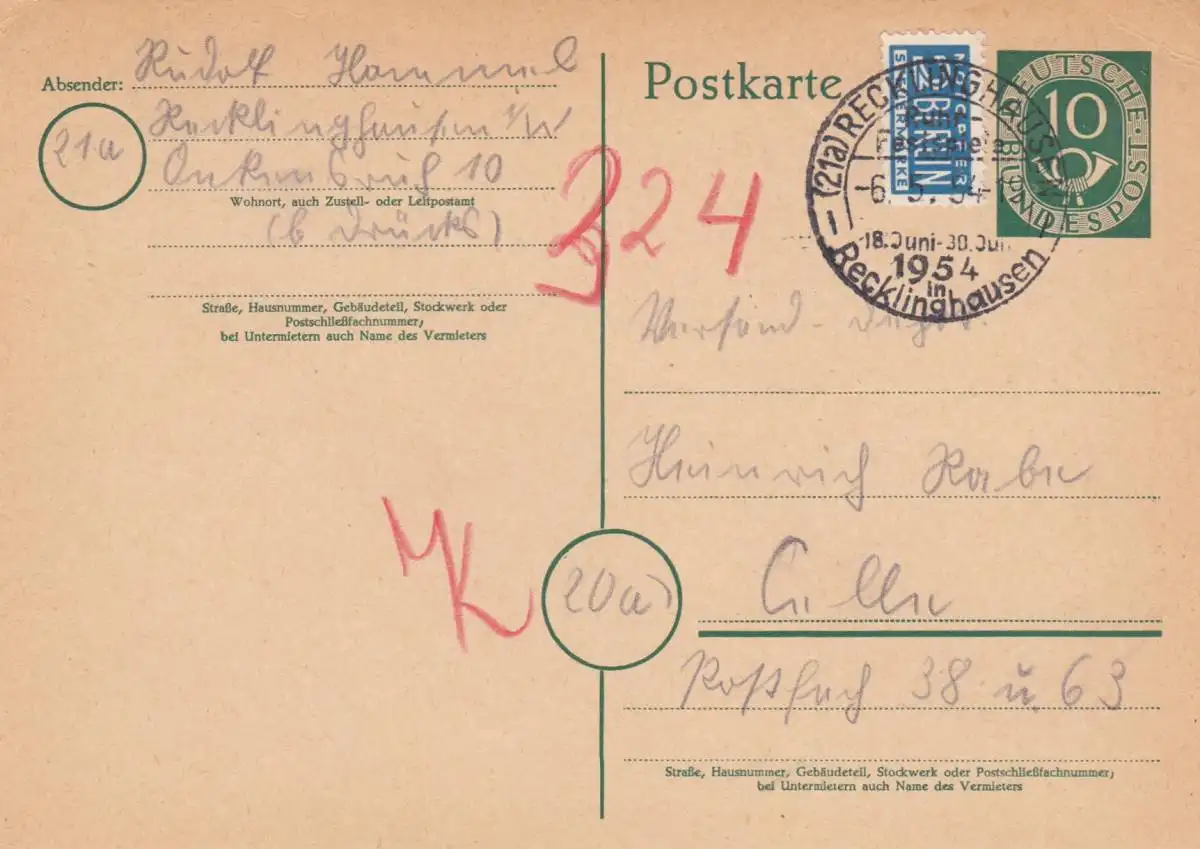 Absender: Rudolf Hammel
21a
Recklinghausen i/W
10
Wohnort, auch Zustell- oder Leitpostamt
(b Drücks)
Straße, Hausnummer, Gebäudeteil, Stockwerk oder
Postschließfachnummer;
bei Untermietern auch Name des Vermieters
324
MK
Postkarte
NOTOPFER
2 BERLIN
STEUERMARKE
DEUTSCHE BUNDESPOST
10
(21a) RECKLINGHAUSEN
Ruhr-
Festspiele
-6.5.54-
18.Juni-30.Jul
1954
in
Recklinghausen
Versand-
Heinrich Rabe
20a
Celle
Postfach 38 u. 63
Straße, Hausnummer, Gebäudeteil, Stockwerk oder Postschließfachnummer;
bei Untermietern auch Name des Vermieters